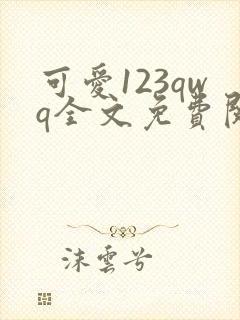 可愛123qw
q全文免費閱
沫雲兮